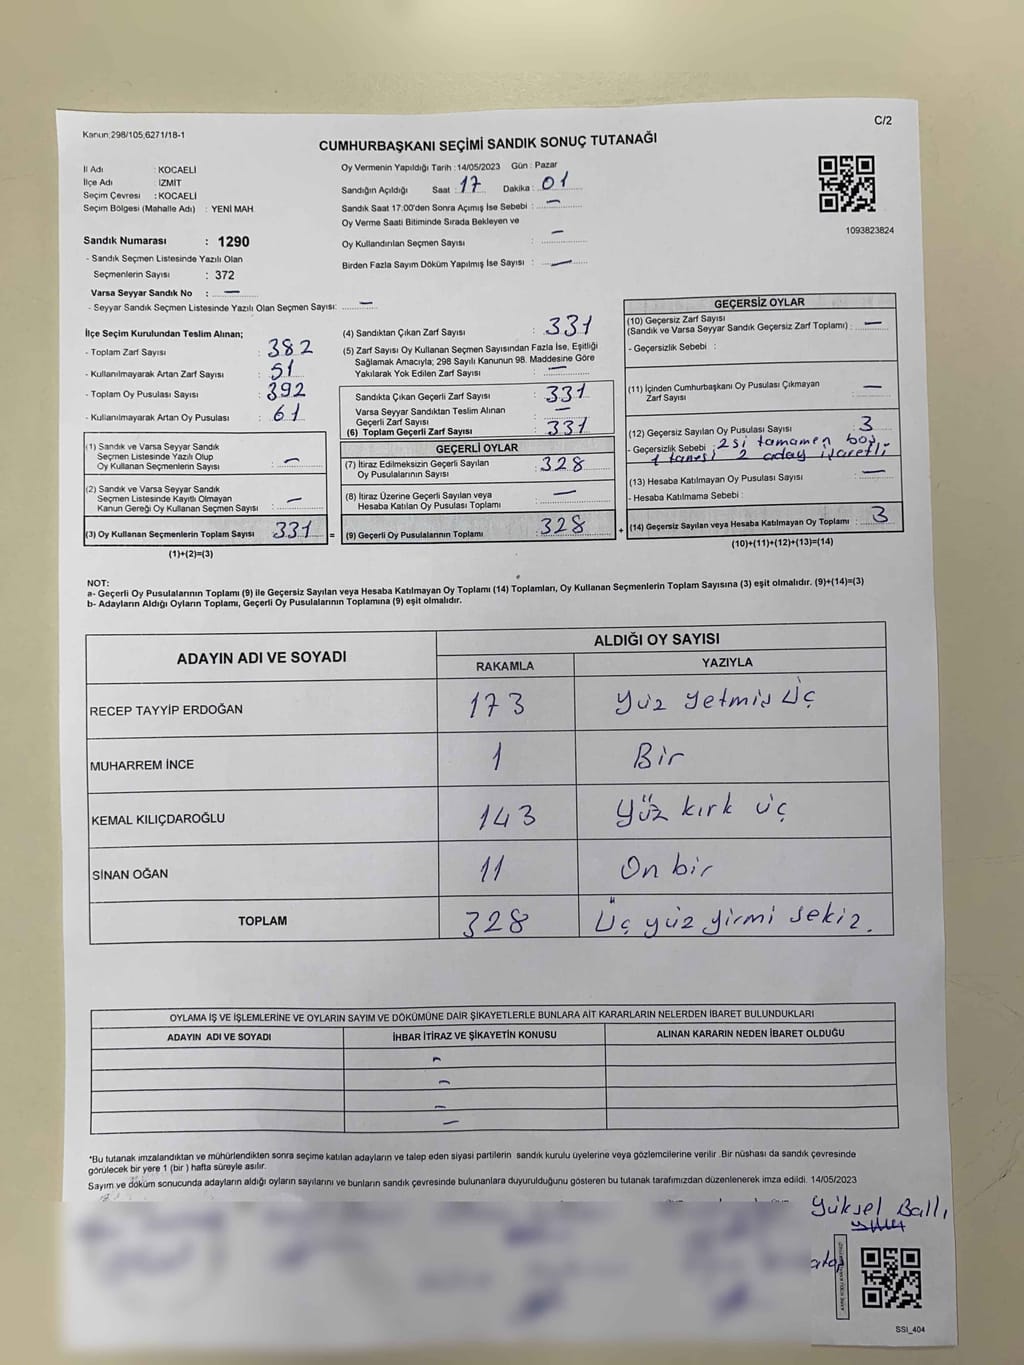 Kanun:298/105;6271/18-1
C/2
CUMHURBAŞKANI SEÇİMİ SANDIK SONUÇ TUTANAĞI
İl Adı : KOCAELİ
İlçe Adı İZMİT
Seçim Çevresi : KOCAELİ
Seçim Bölgesi (Mahalle Adı) : YENİ MAH.
Sandık Numarası : 1290
- Sandık Seçmen Listesinde Yazılı Olan
Seçmenlerin Sayısı : 372
Varsa Seyyar Sandık No : —
- Seyyar Sandık Seçmen Listesinde Yazılı Olan Seçmen Sayısı: —
Oy Vermenin Yapıldığı Tarih : 14/05/2023 Gün : Pazar
Sandığın Açıldığı Saat : 17 Dakika : 01
Sandık Saat 17:00'den Sonra Açımış İse Sebebi : —
Oy Verme Saati Bitiminde Sırada Bekleyen ve
Oy Kullandırılan Seçmen Sayısı : —
Birden Fazla Sayım Döküm Yapılmış İse Sayısı : —
1093823824
İlçe Seçim Kurulundan Teslim Alınan;
- Toplam Zarf Sayısı : 382
- Kullanılmayarak Artan Zarf Sayısı : 51
- Toplam Oy Pusulası Sayısı : 392
- Kullanılmayarak Artan Oy Pusulası : 61
(1) Sandık ve Varsa Seyyar Sandık
Seçmen Listesinde Yazılı Olup
Oy Kullanan Seçmenlerin Sayısı : —
(2) Sandık ve Varsa Seyyar Sandık
Seçmen Listesinde Kayıtlı Olmayan
Kanun Gereği Oy Kullanan Seçmen Sayısı : —
(3) Oy Kullanan Seçmenlerin Toplam Sayısı : 331 =
(1)+(2)=(3)
(4) Sandıktan Çıkan Zarf Sayısı : 331
(5) Zarf Sayısı Oy Kullanan Seçmen Sayısından Fazla İse, Eşitliği
Sağlamak Amacıyla; 298 Sayılı Kanunun 98. Maddesine Göre
Yakılarak Yok Edilen Zarf Sayısı : —
Sandıkta Çıkan Geçerli Zarf Sayısı : 331
Varsa Seyyar Sandıktan Teslim Alınan
Geçerli Zarf Sayısı : —
(6) Toplam Geçerli Zarf Sayısı : 331
GEÇERLİ OYLAR
(7) İtiraz Edilmeksizin Geçerli Sayılan
Oy Pusulalarının Sayısı : 328
(8) İtiraz Üzerine Geçerli Sayılan veya
Hesaba Katılan Oy Pusulası Toplamı : —
(9) Geçerli Oy Pusulalarının Toplamı : 328 +
GEÇERSİZ OYLAR
(10) Geçersiz Zarf Sayısı
(Sandık ve Varsa Seyyar Sandık Geçersiz Zarf Toplamı) : —
- Geçersizlik Sebebi :
(11) İçinden Cumhurbaşkanı Oy Pusulası Çıkmayan
Zarf Sayısı : —
(12) Geçersiz Sayılan Oy Pusulası Sayısı : 3
- Geçersizlik Sebebi : 2si tamamen boş,
1 tanesi 2 aday işaretli
(13) Hesaba Katılmayan Oy Pusulası Sayısı : —
- Hesaba Katılmama Sebebi :
(14) Geçersiz Sayılan veya Hesaba Katılmayan Oy Toplamı : 3
(10)+(11)+(12)+(13)=(14)
NOT:
a- Geçerli Oy Pusulalarının Toplamı (9) ile Geçersiz Sayılan veya Hesaba Katılmayan Oy Toplamı (14) Toplamları, Oy Kullanan Seçmenlerin Toplam Sayısına (3) eşit olmalıdır. (9)+(14)=(3)
b- Adayların Aldığı Oyların Toplamı, Geçerli Oy Pusulalarının Toplamına (9) eşit olmalıdır.
ADAYIN ADI VE SOYADI
ALDIĞI OY SAYISI
RAKAMLA YAZIYLA
RECEP TAYYİP ERDOĞAN 173 Yüz yetmiş üç
MUHARREM İNCE 1 Bir
KEMAL KILIÇDAROĞLU 143 Yüz kırk üç
SİNAN OĞAN 11 On bir
TOPLAM 328 Üç yüz yirmi sekiz.
OYLAMA İŞ VE İŞLEMLERİNE VE OYLARIN SAYIM VE DÖKÜMÜNE DAİR ŞİKAYETLERLE BUNLARA AİT KARARLARIN NELERDEN İBARET BULUNDUKLARI
ADAYIN ADI VE SOYADI İHBAR İTİRAZ VE ŞİKAYETİN KONUSU ALINAN KARARIN NEDEN İBARET OLDUĞU
—
—
—
—
*Bu tutanak imzalandıktan ve mühürlendikten sonra seçime katılan adayların ve talep eden siyasi partilerin sandık kurulu üyelerine veya gözlemcilerine verilir .Bir nüshası da sandık çevresinde
görülecek bir yere 1 (bir ) hafta süreyle asılır.
Sayım ve döküm sonucunda adayların aldığı oyların sayılarını ve bunların sandık çevresinde bulunanlara duyurulduğunu gösteren bu tutanak tarafımızdan düzenlenerek imza edildi. 14/05/2023
Yüksel Ballı
SSI_404